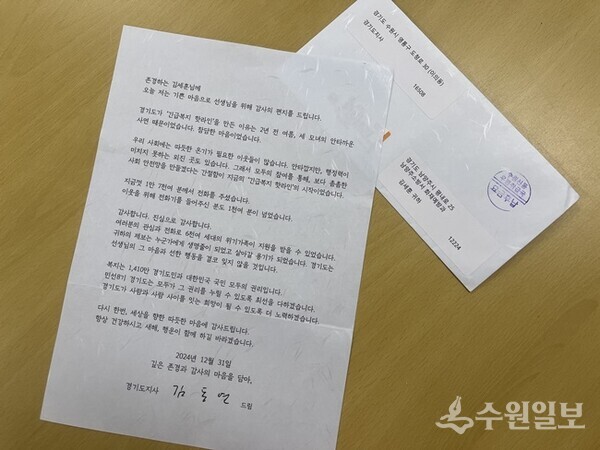 존경하는 김세훈님께
오늘 저는 기쁜 마음으로 선생님을 위해 감사의 편지를 드립니다.
경기도가 '긴급복지 핫라인'을 만든 이유는 2년 전 여름, 세 모녀의 안타까운
사연 때문이었습니다. 참담한 마음이었습니다.
우리 사회에는 따뜻한 온기가 필요한 이웃들이 많습니다. 안타깝지만, 행정력이
미치지 못하는 외진 곳도 있습니다. 그래서 모두의 참여를 통해, 보다 촘촘한
사회 안전망을 만들겠다는 간절함이 지금의 '긴급복지 핫라인'의 시작이었습니다.
지금껏 1만 7천여 분께서 전화를 주셨습니다.
이웃을 위해 전화기를 들어주신 분도 1천여 분이 넘었습니다.
감사합니다. 진심으로 감사합니다.
여러분의 관심과 전화로 6천여 세대의 위기가족이 지원을 받을 수 있었습니다.
귀하의 제보는 누군가에게 생명줄이 되었고 살아갈 용기가 되었습니다. 경기도는
선생님의 그 마음과 선한 행동을 결코 잊지 않을 것입니다.
복지는 1,410만 경기도민과 대한민국 국민 모두의 권리입니다.
민선8기 경기도는 모두가 그 권리를 누릴 수 있도록 최선을 다하겠습니다.
경기도가 사람과 사람 사이를 잇는 희망이 될 수 있도록 더 노력하겠습니다.
다시 한번, 세상을 향한 따뜻한 마음에 감사드립니다.
항상 건강하시고 새해, 행운이 함께 하길 바라겠습니다.
2024년 12월 31일
깊은 존경과 감사의 마음을 담아,
경기도지사 김동연 드림
경기도 수원시 영통구 도청로 30 (이의동)
경기도지사
16508
경기도 남양주시 경춘로
남양주소방서 화재예방과
김세훈 귀하
12224
수원일보